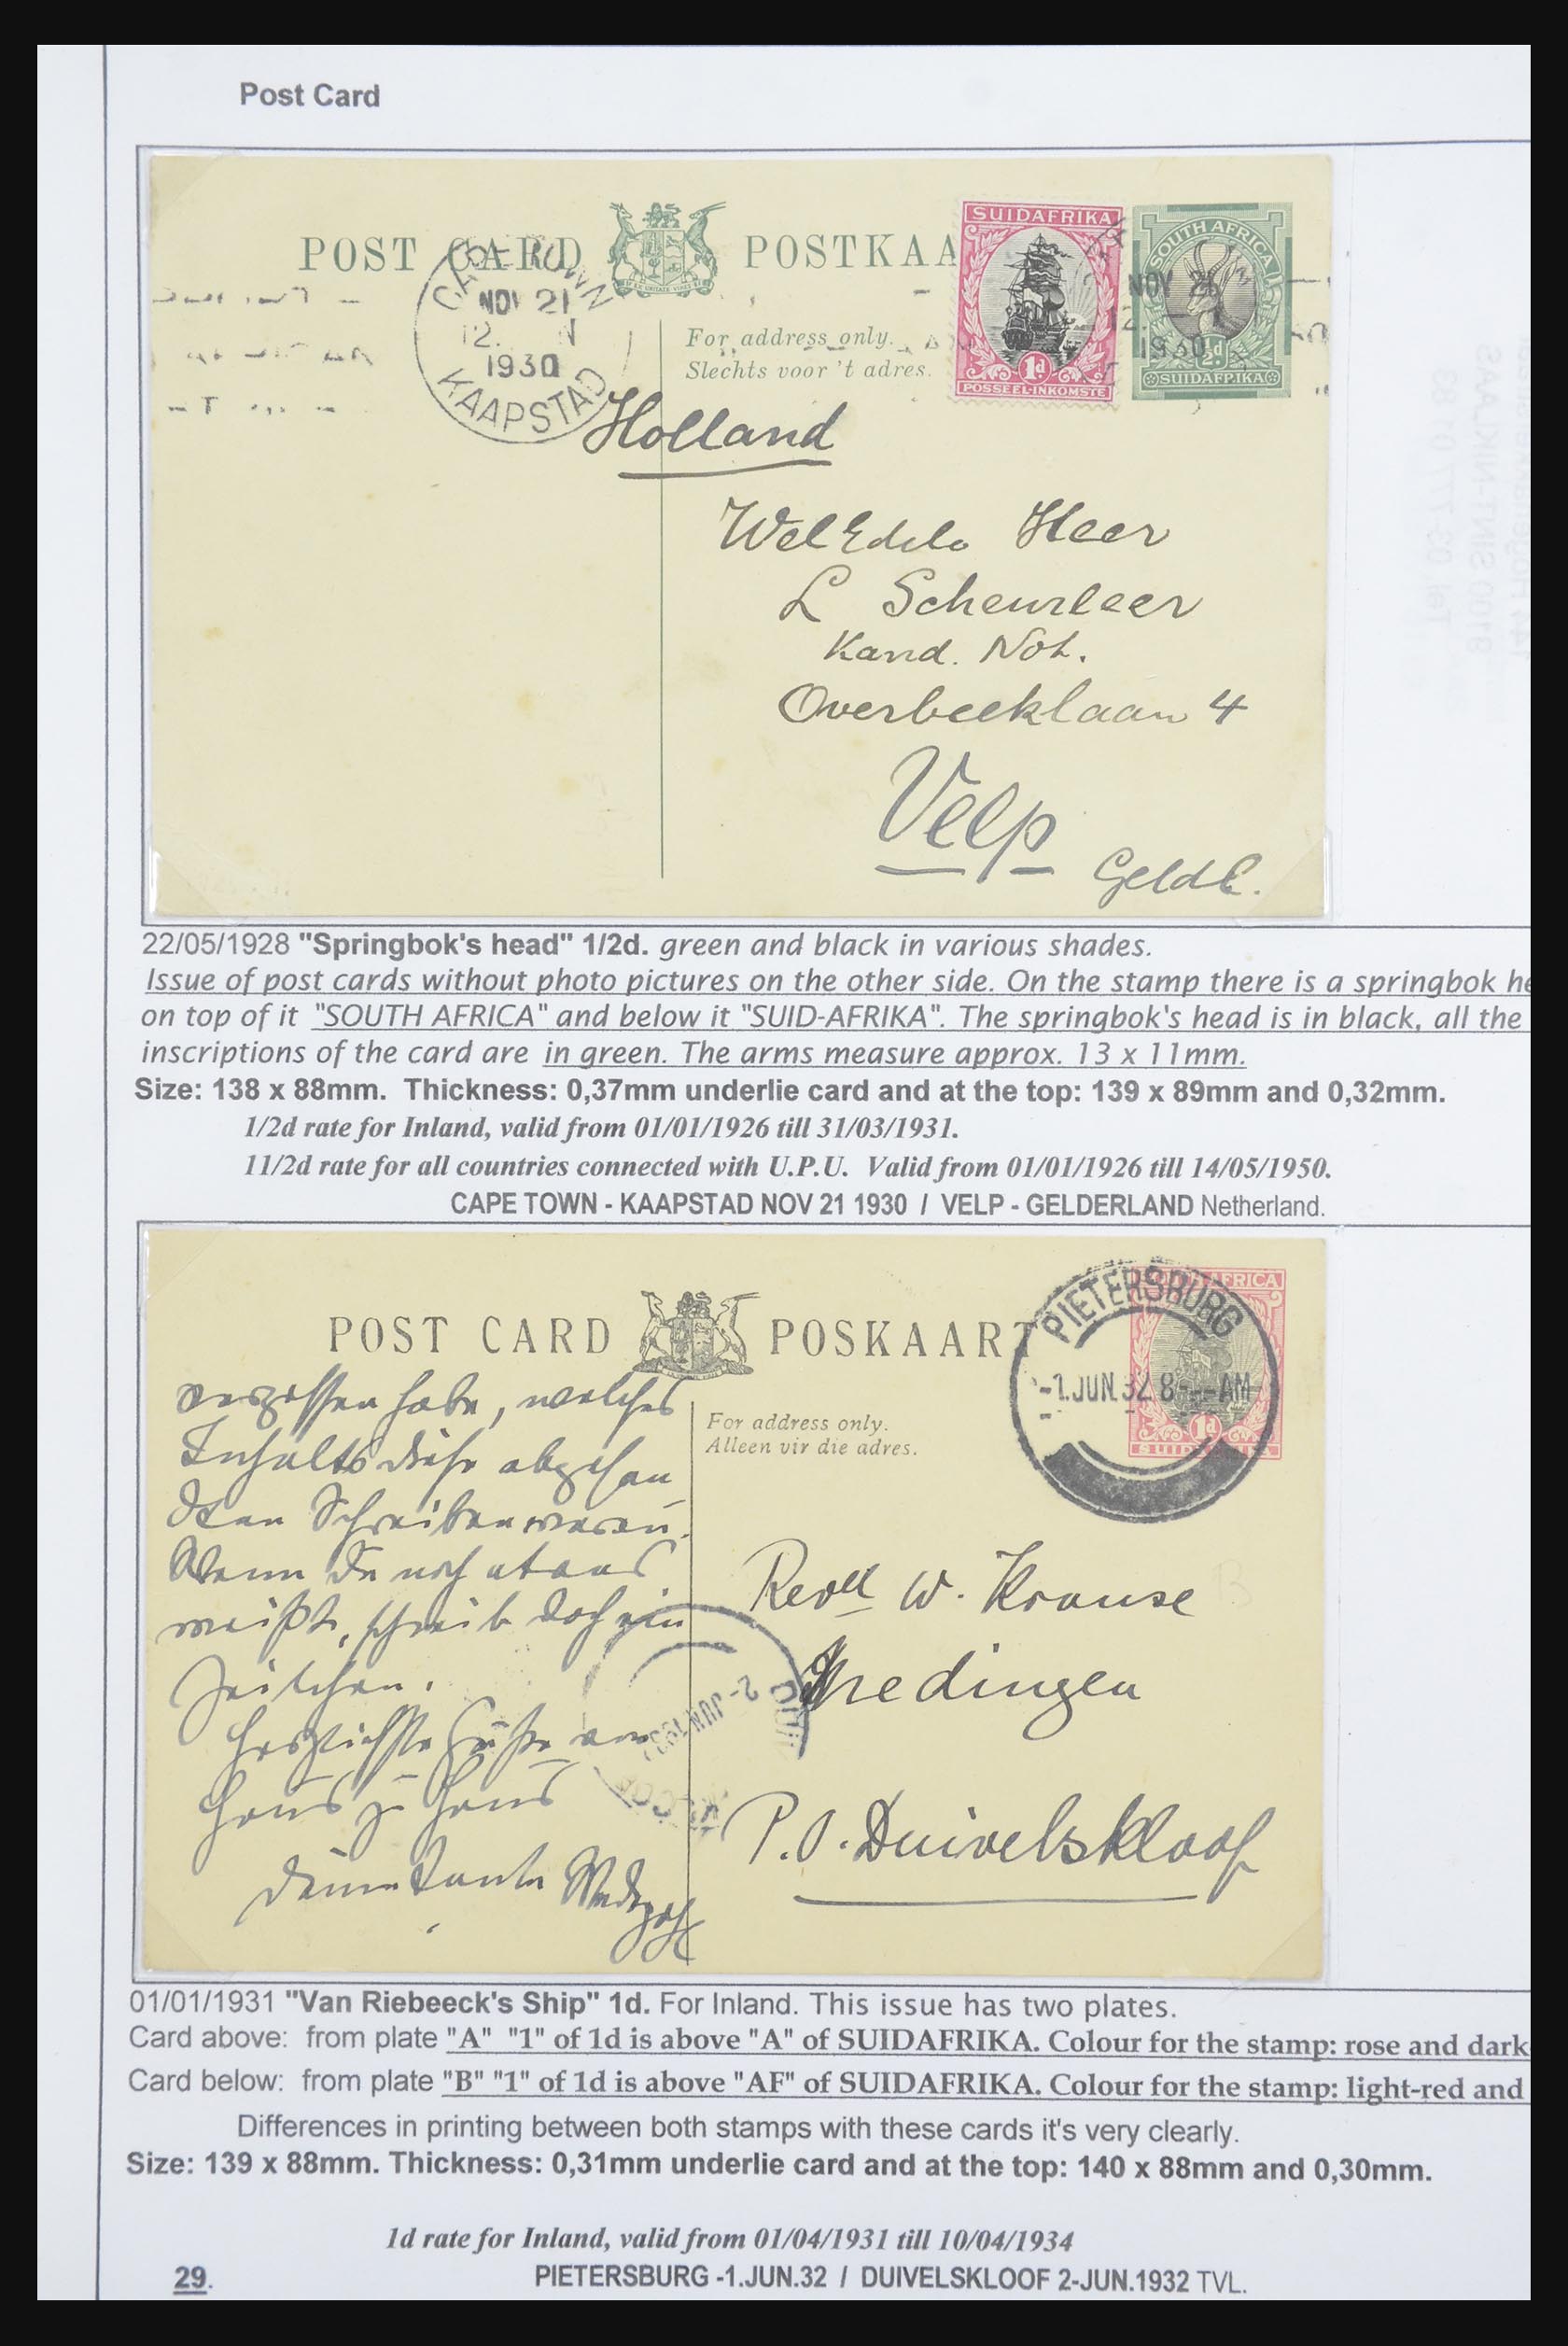 Post Card
POST CARD POSTKAA
CAPE TOWN
NOV 21
12. N
1930
KAAPSTAD
SUIDAFRIKA
1d
POSSEEL-INKOMSTE
SOUTH AFRICA
NOV 21
12.
1930
½d
SUIDAFRIKA
For address only.
Slechts voor 't adres.
Holland
WelEdele Heer
L Scheurleer
Kand. Not.
Overbeeklaan 4
Velp
Geldl.
22/05/1928 "Springbok's head" 1/2d. green and black in various shades.
Issue of post cards without photo pictures on the other side. On the stamp there is a springbok he
on top of it "SOUTH AFRICA" and below it "SUID-AFRIKA". The springbok's head is in black, all the
inscriptions of the card are in green. The arms measure approx. 13 x 11mm.
Size: 138 x 88mm. Thickness: 0,37mm underlie card and at the top: 139 x 89mm and 0,32mm.
1/2d rate for Inland, valid from 01/01/1926 till 31/03/1931.
11/2d rate for all countries connected with U.P.U. Valid from 01/01/1926 till 14/05/1950.
CAPE TOWN - KAAPSTAD NOV 21 1930 / VELP - GELDERLAND Netherland.
POST CARD POSKAART
PIETERSBURG
-1.JUN.32 8- -AM
1d
SUIDAFRIKA
For address only.
Alleen vir die adres.
vergessen habe, welches
Inhalts diese abgesan
dten Schreiben waren.
Wenn Du noch etwas
weißt, schreib doch ein
Zeilchen.
Herzlichste Grüße von
Haus zu Haus
Deine Tante
2-JUN 1932
Revd W. Krause
Medingen
P.O. Duivelskloof
01/01/1931 "Van Riebeeck's Ship" 1d. For Inland. This issue has two plates.
Card above: from plate "A" "1" of 1d is above "A" of SUIDAFRIKA. Colour for the stamp: rose and dark-
Card below: from plate "B" "1" of 1d is above "AF" of SUIDAFRIKA. Colour for the stamp: light-red and
Differences in printing between both stamps with these cards it's very clearly.
Size: 139 x 88mm. Thickness: 0,31mm underlie card and at the top: 140 x 88mm and 0,30mm.
1d rate for Inland, valid from 01/04/1931 till 10/04/1934
29. PIETERSBURG -1.JUN.32 / DUIVELSKLOOF 2-JUN.1932 TVL.